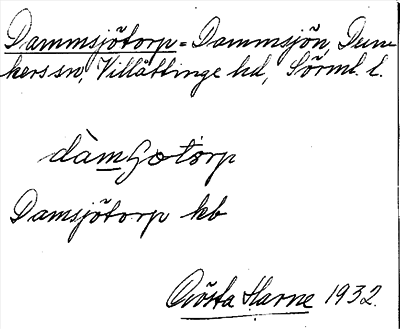 Dammsjötorp = Dammsjön, Dun-
kers sn, Villåttinge hd, Sörml. l.
Damsjötorp kb
Gösta Harne 1932.